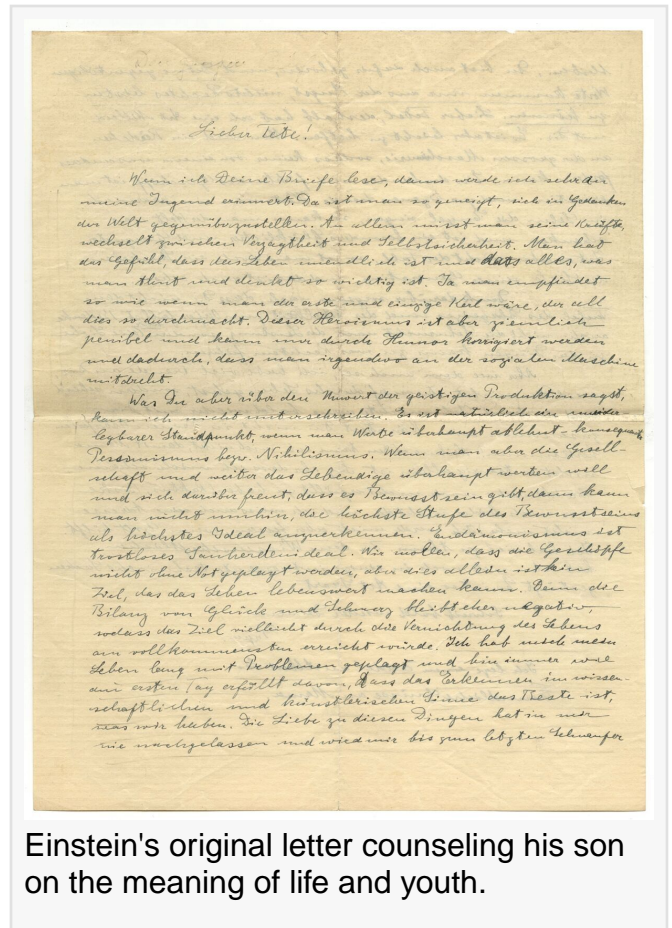 Lieber Tete!
Wenn ich Deine Briefe lese, dann werde ich sehr an
meine Jugend erinnert. Da ist man so geneigt, sich in Gedanken
der Welt gegenüberzustellen. An allem misst man seine Kräfte,
wechselt zwischen Verzagtheit und Selbstsicherheit. Man hat
das Gefühl, dass das Leben unendlich ist und dass alles, was
man thut und denkt so wichtig ist. Ja man empfindet
so wie wenn man der erste und einzige Kerl wäre, der all
dies so durchmacht. Dieser Heroismus ist aber ziemlich
penibel und kann nur durch Humor korrigiert werden
und dadurch, dass man irgendwo an der sozialen Maschine
mitdreht.
Was Du aber über den Unwert der geistigen Produktion sagst,
kann ich nicht unterschreiben. Es ist natürlich ein unwider-
legbarer Standpunkt, wenn man Werte überhaupt ablehnt - konsequenter
Pessimismus bezw. Nihilismus. Wenn man aber die Gesell-
schaft und weiter das Lebendige überhaupt werten will
und sich darüber freut, dass es Bewusstsein gibt, dann kann
man nicht umhin, die höchste Stufe des Bewusstseins
als höchstes Ideal anzuerkennen. Eudämonismus ist
trostloses Sauherdenideal. Wir wollen, dass die Geschöpfe
nicht ohne Not geplagt werden, aber dies allein ist kein
Ziel, das das Leben lebenswert machen kann. Denn die
Bilanz von Glück und Schmerz bleibt eher negativ,
sodass das Ziel vielleicht durch die Vernichtung des Lebens
am vollkommensten erreicht würde. Ich hab mich mein
Leben lang mit Problemen geplagt und bin immer wie
am ersten Tag erfüllt davon, dass das Erkennen im wissen-
schaftlichen und künstlerischen Sinne das Beste ist,
was wir haben. Die Liebe zu diesen Dingen hat in mir
nie nachgelassen und wird mir bis zum letzten Schnaufer
Einstein's original letter counseling his son
on the meaning of life and youth.